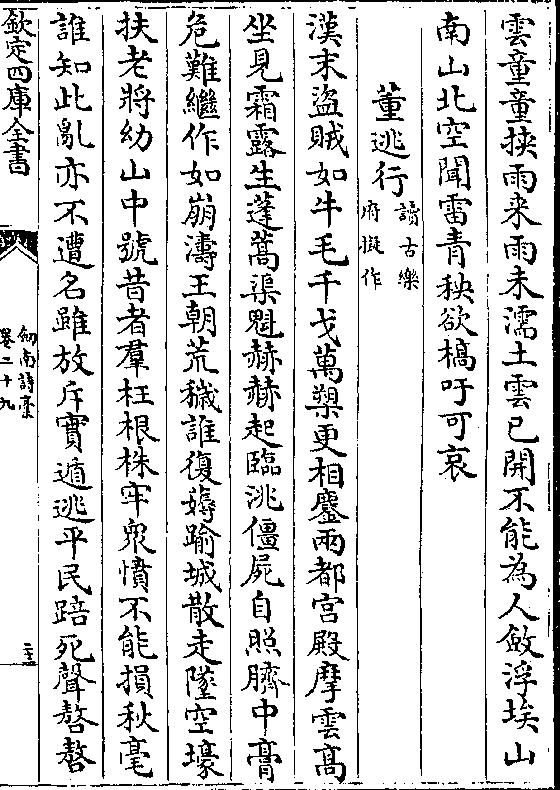 雲童童挾雨来雨未濡土雲已開不能為人斂浮埃山
南山北空聞雷青秧欲槁吁可哀
董逃行
讀古樂
府擬作
漢末盜賊如牛毛千戈萬槊更相鏖兩都宮殿摩雲髙
坐見霜露生蓬蒿渠魁赫赫起臨洮僵屍自照臍中膏
危難繼作如崩濤王朝荒穢誰復薅踰城散走墜空壕
扶老將幼山中號昔者羣枉根株牢衆憤不能損秋毫
誰知此亂亦不遭名雖放斥實遁逃平民踣死聲嗸嗸
欽定四庫全書
劒南詩稾
卷二十九